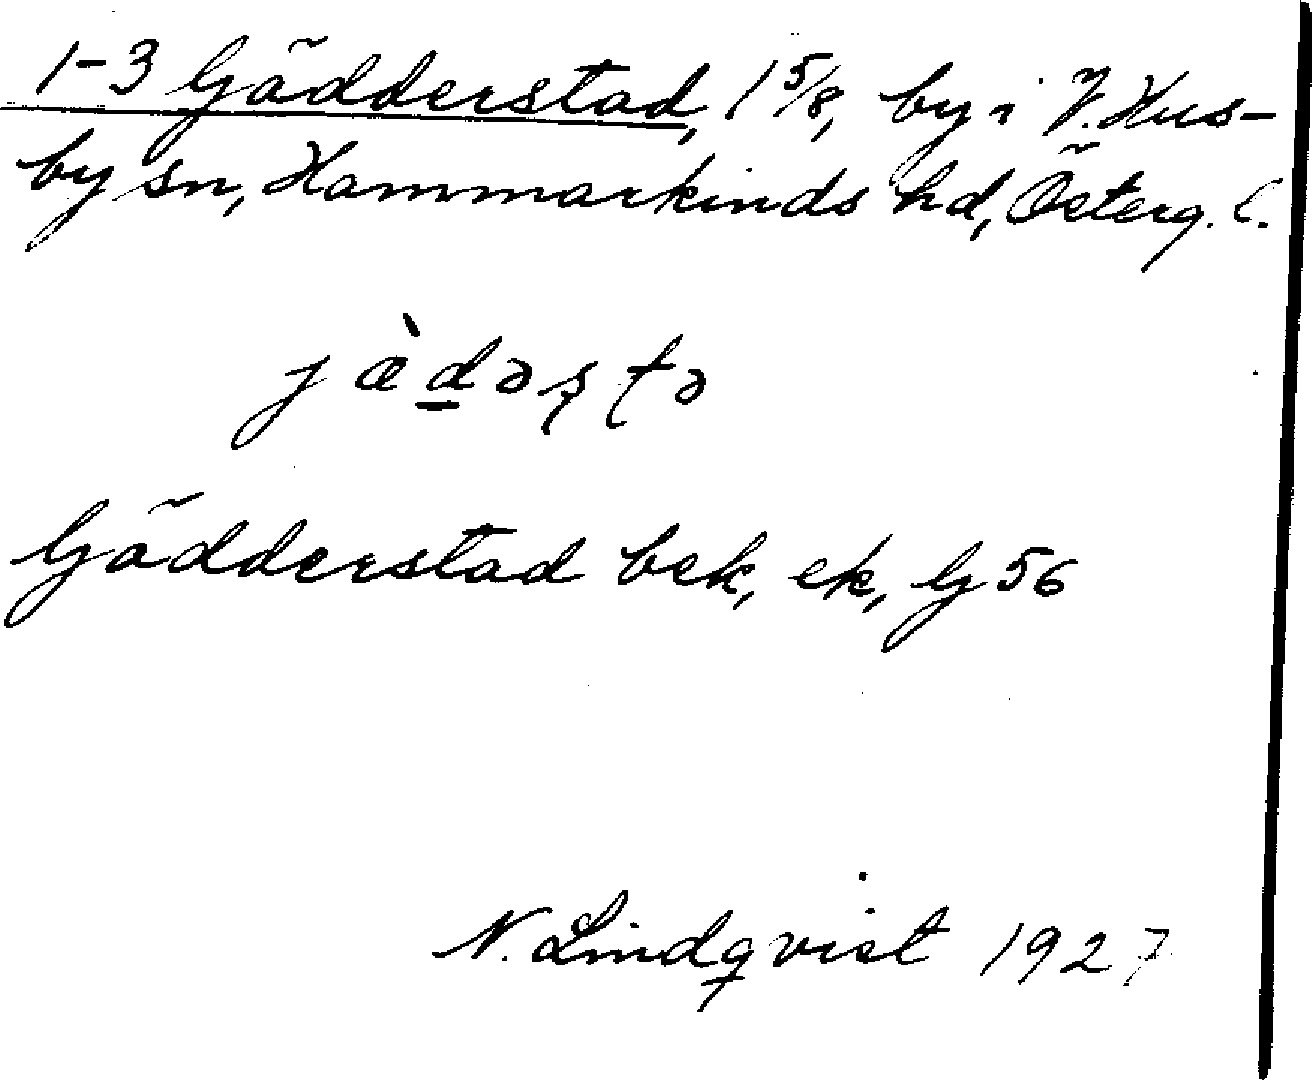 1-3 Gädderstad, 1 5/8, by i V. Hus-
by sn, Hammarkinds hd, Österg. l.
jæ̀d̲əʂʈə
Gädderstad bek, ek, G 56
N. Lindqvist 1927